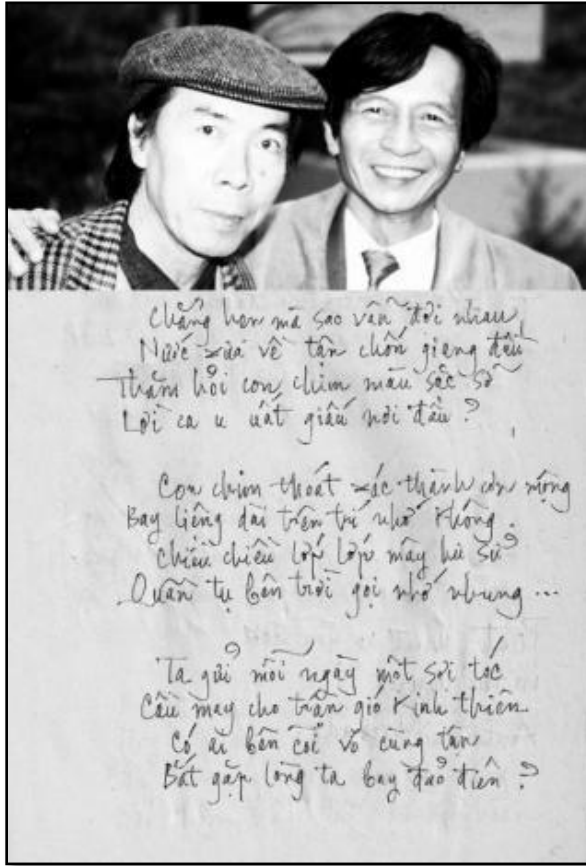 Chẳng hẹn mà sao vẫn đợi nhau
Nước xưa về tận chốn giang đầu
Thăm hỏi con chim màu sặc sỡ
Lời ca u uất giấu nơi đâu ?
Con chim thoát xác thành cơn mộng
Bay liệng dài trên trí nhớ không.
Chiều chiều lớp lớp mây hư sử
Quần tụ bên trời gọi nhớ nhung ...
Ta gửi mỗi ngày một sợi tóc
Cầu may cho trận gió kinh thiên
Có ai bên cõi vô cùng tận
Bắt gặp lòng ta bay đảo điên ?